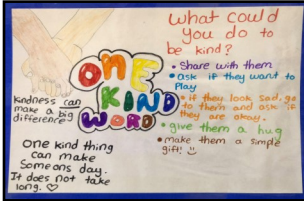 What could
you do to
be kind?
• Share with them
• ask if they want to
Play
• if they look sad, go
to them and ask if
they are okay.
• give them a hug
• make them a simple
gift!
ONE
KIND
WORD
kindness can
make a big
difference
One kind thing
can make
Someons day.
It does not take
long.